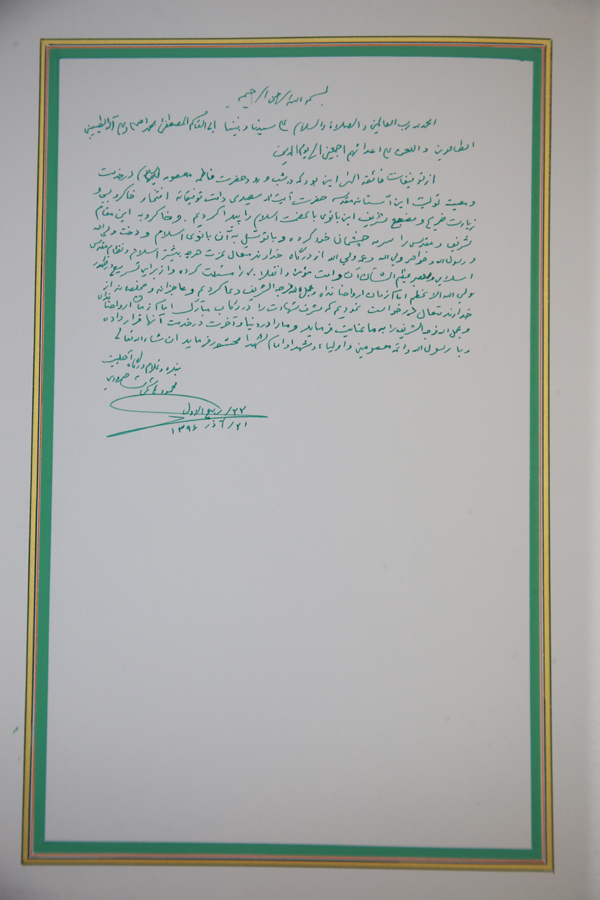 بسم الله الرحمن الرحیم
الحمد لله رب العالمین و الصلاة والسلام علی سیدنا و نبینا ابی القاسم المصطفی محمد و علی آله الطیبین
الطاهرین و اللعن علی اعدائهم اجمعین الی یوم الدین
از توفیقات فائقه الهی این بود که در شب و حضرت فاطمه معصومه در خدمت
و معیت تولیت این آستان مقدسه حضرت آیت الله سعیدی دامت توفیقاته افتخار خاکروبی و
زیارت ضریح و مضجع شریف این بانوی با عظمت اسلام را پیدا کردیم. و خاکروبه این مقام
شریف و مقدس را سرمه چشمان خود کرده و با توسل به آن بانوی اسلام و دخت ولی الله
و رسول الله و خواهر ولی الله و عمه ولی الله از درگاه خداوند متعال عزت هرچه بیشتر اسلام و نظام مقدس
اسلامی و رهبر عظیم الشأن آن و امت مؤمن و انقلابی را مسئلت کرده و از برای تسریع در ظهور
ولی الله الاعظم امام زمان ارواحنا فداه و عجل الله فرجه الشریف دعا کردیم و عاجزانه و از
خداوند متعال درخواست نمودیم که شرف شهادت را در رکاب مبارک امام زمان ارواحنا فداه
و عجل الله فرجه الشریف را به ما عنایت فرماید و ما را در دنیا و آخرت در خدمت آنها قرار داده
و با رسول الله و ائمه معصومین و اولیاء و شهدا و امام شهدا محشور فرماید ان شاء الله تعالی
بنده و غلام درگاه اهلبیت
محمود هاشمی شاهرودی
۲۲/ ربیع الاول
۲۱/ آذر ۱۳۹۶